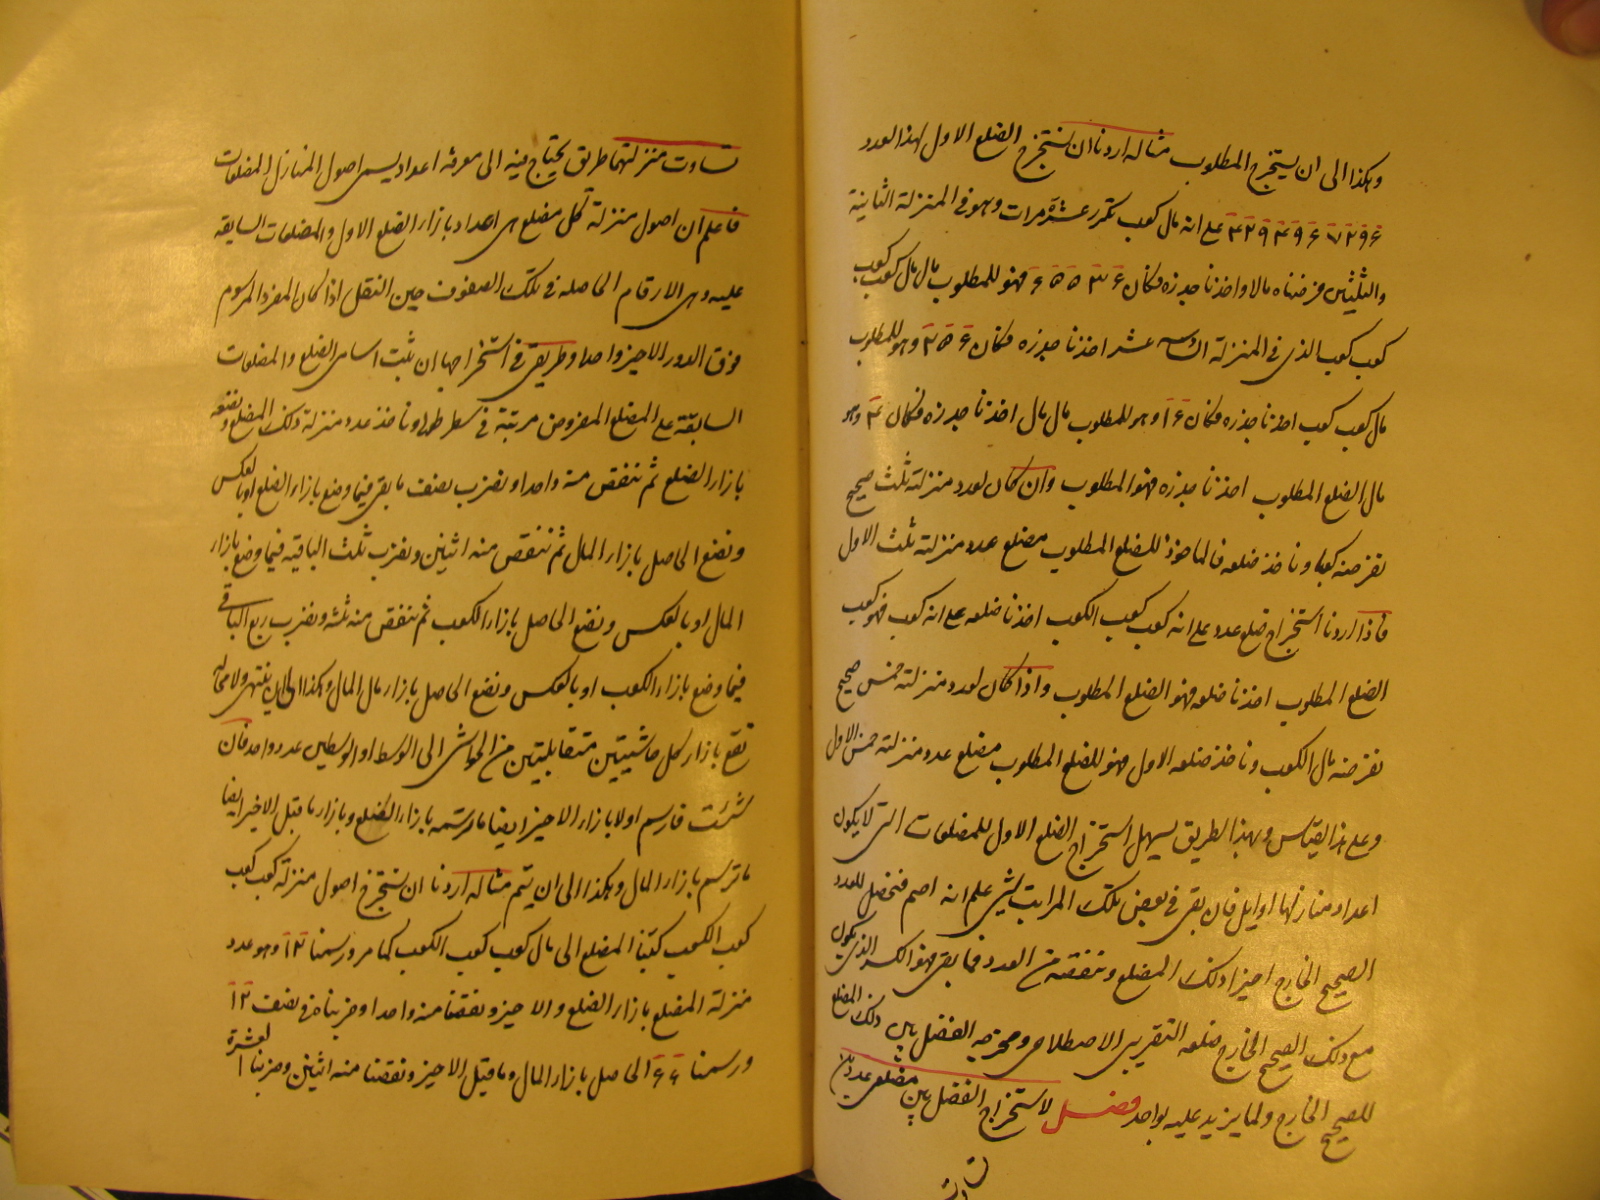 وهكذا الى ان يستخرج المطلوب مثاله اردنا ان نستخرج الضلع الاول لهذا العدد
۴۲۹۴۹۶۷۲۹۶ على انه مال كعب تكرر عشرة مرات وهو فى المنزلة الثانية
والثلثين فرضناه مالا واخذنا جذره فكان ۶۵۵۳۶ فهو للمطلوب مال مال كعب كعب
كعب كعب الذى فى المنزلة السادسه عشر اخذنا جذره فكان ۲۵۶ وهو للمطلوب
مال كعب كعب اخذنا جذره فكان ۱۶ وهو للمطلوب مال مال اخذنا جذره فكان ۴ وهو
مال الضلع المطلوب اخذنا جذره فهو المطلوب وان كان لعدد منزلته ثلث صحيح
نفرضه كعبا وناخذ ضلعه فالماخوذ للضلع المطلوب مضلع عدد منزلته ثلث الاول
فاذا اردنا استخراج ضلع عدد على انه كعب كعب الكعب اخذنا ضلعه على انه كعب فهو كعب
الضلع المطلوب اخذنا ضلعه فهو الضلع المطلوب واذا كان لعدد منزلته خمس صحيح
نفرضه مال الكعب وناخذ ضلعه الاول فهو للضلع المطلوب مضلع عدد منزلته خمس الاول
وعلى هذا القياس وبهذا الطريق يسهل استخراج الضلع الاول للمضلعات التى لا يكون
اعداد منازلها اوايل فان بقى فى بعض تلك المراتب شئ علم انه اصم فنحصل للعدد
الصحيح الخارج اخيرا ذلك المضلع وننقصه من العدد فما بقى فهو الكسر الذى يكون
مع ذلك الصحيح الخارج ضلعه التقريبى الاصطلاحى ومخرجه الفضل بين ذلك المضلع
للصحيح الخارج ولما يزيد عليه بواحد فصل لاستخراج الفضل بين مضلعى عددين
تساوت
تساوت منزلتهما طريق يحتاج فيه الى معرفة اعداد يسمى اصول المنازل المضلعات
فاعلم ان اصول منزلة كل مضلع هى اعداد بازاء الضلع الاول والمضلعات السابقه
عليه وهى الارقام الحاصله فى تلك الصفوف حين النقل اذا كان المفرد المرسوم
فوق الدور الاخير واحدا وطريق فى استخراجها ان نثبت اسامى الضلع والمضلعات
السابقة على المضلع المفروض مرتبة فى سطر طولى وناخذ عدد منزلة ذلك المضلع ونضعه
بازاء الضلع ثم ننقص منه واحدا ونضرب نصف ما بقى فيما وضع بازاء الضلع او بالعكس
ونضع الحاصل بازاء المال ثم ننقص منه اثنين ونضرب ثلث الباقيه فيما وضع بازاء
المال او بالعكس ونضع الحاصل بازاء الكعب ثم ننقص منه ثلثه ونضرب ربع الباقى
فيما وضع بازاء الكعب او بالعكس ونضع الحاصل بازاء مال المال وهكذا الى ان ينتهى ولا محاله
تقع بازاء كل حاشيتين متقابلتين من الحواشى الى الوسط او الوسطين عدد واحد فان
شئت فارسم اولا بازاء الاخير ايضا ما ترسمه بازاء الضلع وبازاء ما قبل الاخير ايضا
ما ترسم بازاء المال وهكذا الى ان يتم مثاله اردنا ان نستخرج اصول منزلة كعب كعب
كعب الكعب كتبنا المضلع الى مال كعب كعب الكعب كما مر ورسمنا ۱۲ وهو عدد
منزلة المضلع بازاء الضلع والاخير ونقصنا منه واحدا وضربناه فى نصف ۱۲
ورسمنا ۶۶ الحاصل بازاء المال وما قبل الاخير ونقصنا منه اثنين وضربنا العشرة